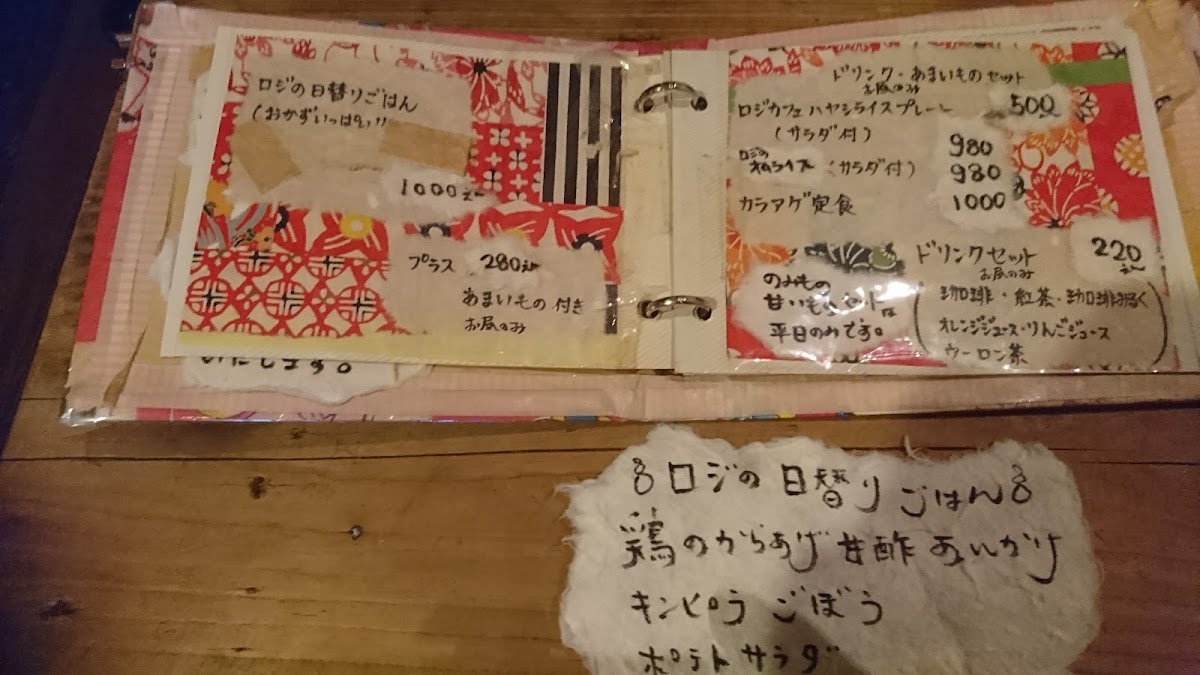 ロジの日替りごはん
(おかずいっぱい!!
1000えん
プラス 280えん
あまいもの 付き
お昼のみ
いたします。
ドリンク・あまいものセット
お昼のみ
500
ロジカフェ ハヤシライスプレート
(サラダ付)
980
ロジの
オムライス (サラダ付)
980
カラアゲ定食 1000
ドリンクセット 220えん
お昼のみ
(珈琲・紅茶・珈琲
オレンジジュース・りんごジュース
ウーロン茶)
のみもの
甘いものセットは
平日のみです。
ロジの日替りごはん
鶏のからあげ 甘酢あんかけ
キンピラ ごぼう
ポテトサラダ